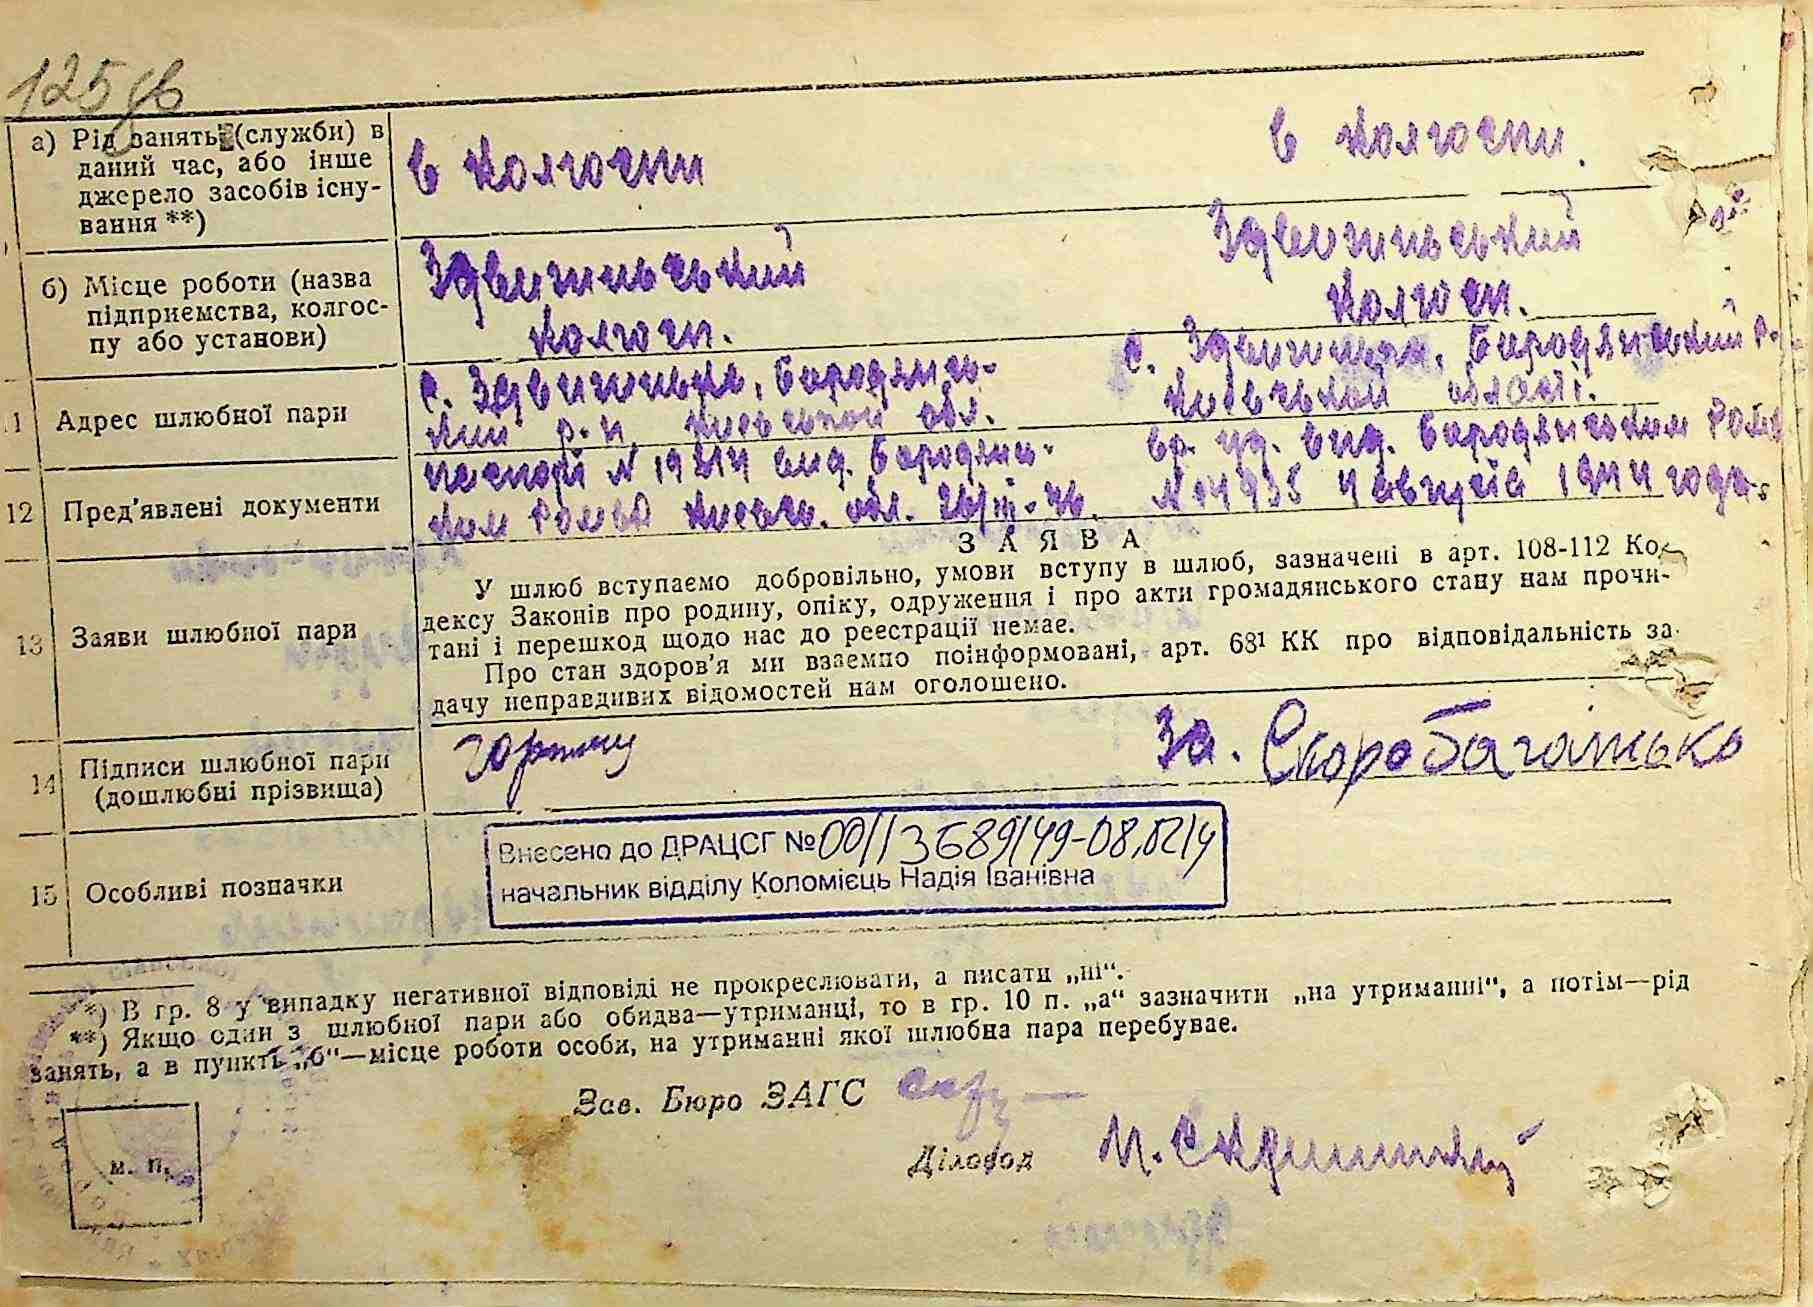 125 зв
а) Рід занять (служби) в
даний час, або інше
джерело засобів існу-
вання **)
в колгоспи
в колгоспи.
б) Місце роботи (назва
підприємства, колгос-
пу або установи)
Здвигиньський
колгосп.
Здвигиньський
колгосп.
11 Адрес шлюбної пари
с.
Бородянсь-
кий р-н, Киевської обл.
с.
Бородянський р-
області.
12 Пред'явлені документи
паспорт N вид. Бородянсь-
ким РОМВД Киевсь. обл. 26/III-46.
вр. уд. вид. Бородянським
N 14935 4 августа 1944 года.
ЗАЯВА
13 Заяви шлюбної пари
У шлюб вступаємо добровільно, умови вступу в шлюб, зазначені в арт. 108-112 Ко-
дексу Законів про родину, опіку, одруження і про акти громадянського стану нам прочи-
тані і перешкод щодо нас до реєстрації немає.
Про стан здоров'я ми взаємно поінформовані, арт. 68¹ КК про відповідальність за
дачу неправдивих відомостей нам оголошено.
14 Підписи шлюбної пари
(дошлюбні прізвища)
За. Скоробагатько
15 Особливі позначки
Внесено до ДРАЦСГ №
начальник відділу Коломієць Надія Іванівна
*) В гр. 8 у випадку негативної відповіді не прокреслювати, а писати „ні“.
**) Якщо один з шлюбної пари або обидва—утриманці, то в гр. 10 п. „а“ зазначити „на утриманні“, а потім—рід
занять, а в пункті „б“—місце роботи особи, на утриманні якої шлюбна пара перебуває.
Зав. Бюро ЗАГС
Діловод
м. п.